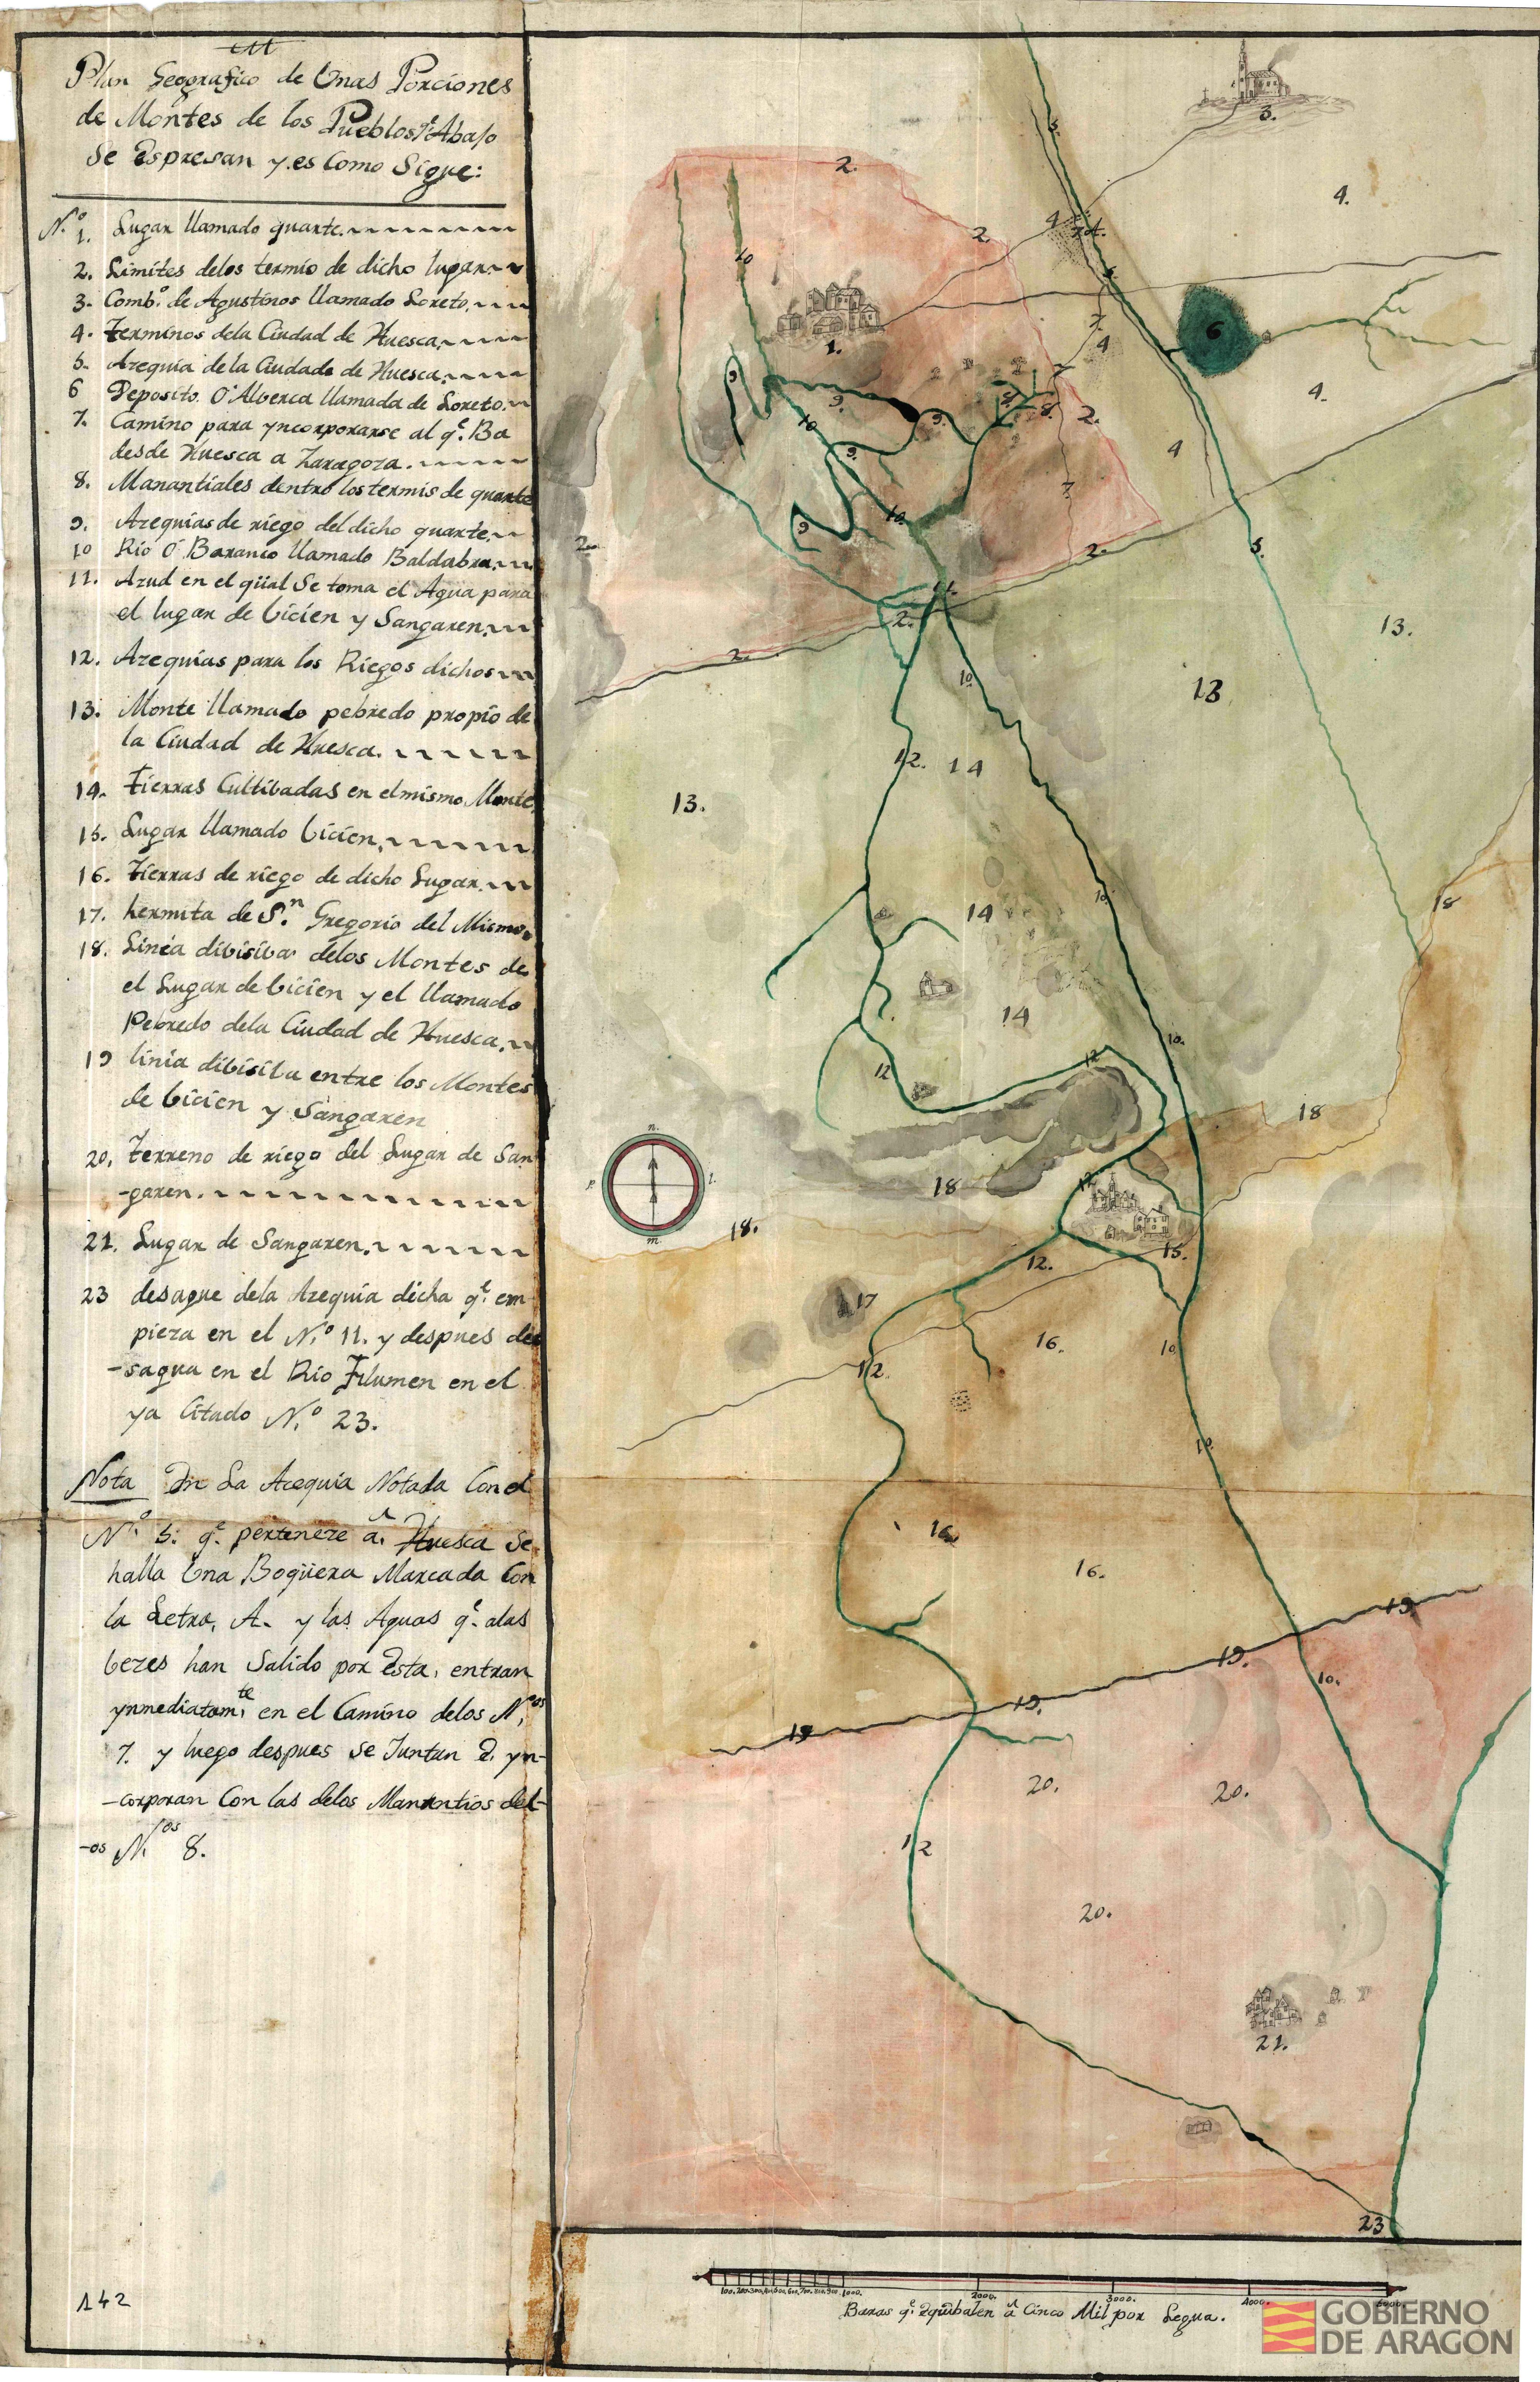 Plan Geografico de Unas Porciones
de Montes de los Pueblos q.e Abajo
se Espresan y es Como Sigue:
N.o 1. Lugar llamado quarte.
2. Limites delos termio de dicho lugar.
3. Comb.o de Agustinos llamado Loreto.
4. Terminos dela Ciudad de Huesca.
5. Azequia de la Ciudade de Huesca.
6 Deposito O Alberca llamada de Loreto.
7. Camino para yncorporarse al q.e Ba
desde Huesca a Zaragoza.
8. Manantiales dentro los termis de quarte
9. Azequias de riego del dicho quarte.
10 Rio O Baranco llamado Baldabra.
11. Azud en el qüal se toma el Agua para
el lugar de bicien y Sangaren.
12. Azequias para los Riegos dichos
13. Monte llamado pebredo propio de
la Ciudad de Huesca.
14. Tierras Cultibadas en el mismo Monte
15. Lugar llamado bicien.
16. Tierras de riego de dicho Lugar.
17. hermita de S.n Gregorio del Mismo.
18. Linea dibisiba delos Montes de
el Lugar de bicien y el llamado
Pebredo dela Ciudad de Huesca.
19 linia dibisiba entre los Montes
de bicien y Sangaren
20. Terreno de riego del Lugar de San
-garen.
21. Lugar de Sangaren.
23 desague dela Azequia dicha q.e em
pieza en el N.o 11. y despues de
-sagua en el Rio Flumen en el
ya Citado N.o 23.
Nota En La Acequia Notada Con el
N.o 5: q.e perteneze a Huesca se
halla Una Boqüera Marcada Con
la Letra, A. y las Aguas q.e alas
bezes han salido por Esta, entran
ynmediatam.te en el Camino delos N.eos
7. y luego despues se Juntan E yn-
-corporan Con las delos Manantios del-
-os N.os 8.
142
3.
2.
5.
4.
4.
2.
10
1.
6
7.
4
4.
7
9
9.
9.
8.
8.
2.
10
9.
4
7.
10.
9
2.
2.
5.
11.
2.
2.
13.
10.
13
12.
14
13.
10.
14
18
14
10.
12
12
18
n.
p.
l.
m.
18
12
18.
15.
12.
17
16.
10
12
10
16.
16.
19.
19.
10.
19.
19
20.
20.
12
20.
21.
23
100. 200. 300. 400. 500. 600. 700. 800. 900. 1000. 2000. 3000. 4000. 5000.
Baras q.e Equibalen a Cinco Mil por Legua.
GOBIERNO
DE ARAGON